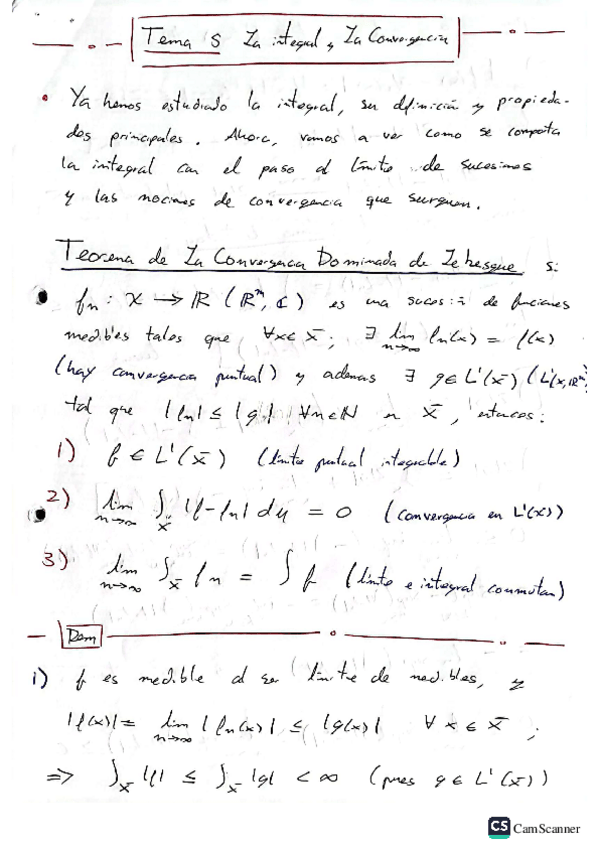 Tema 5 La integral y La Convergencia
• Ya hemos estudiado la integral, su definición y propieda-
des principales. Ahora, vamos a ver como se comporta
la integral con el paso al límite de sucesiones
y las nociones de convergencia que surguen.
Teorema de La Convergencia Dominada de Lebesgue si:
fn: X → ℝ (ℝⁿ, ℂ) es una sucesión de funciones
medibles tales que ∀x∈X; ∃ lim n→∞ fn(x) = f(x)
(hay convergencia puntual) y ademas ∃ g∈L¹(X) (L¹(X,ℝⁿ)
tal que |fn| ≤ |g| ∀n∈ℕ en X, entonces:
1) f ∈ L¹(X) (límite puntual integrable)
2) lim n→∞ ∫X |f-fn| dμ = 0 (convergencia en L¹(X))
3) lim n→∞ ∫X fn = ∫ f (límite e integral conmutan)
Dem
i) f es medible al ser límite de medibles, y
|f(x)| = lim n→∞ |fn(x)| ≤ |g(x)| ∀ x ∈ X;
=> ∫X |f| ≤ ∫X |g| < ∞ (pues g ∈ L¹(X))
CS CamScanner